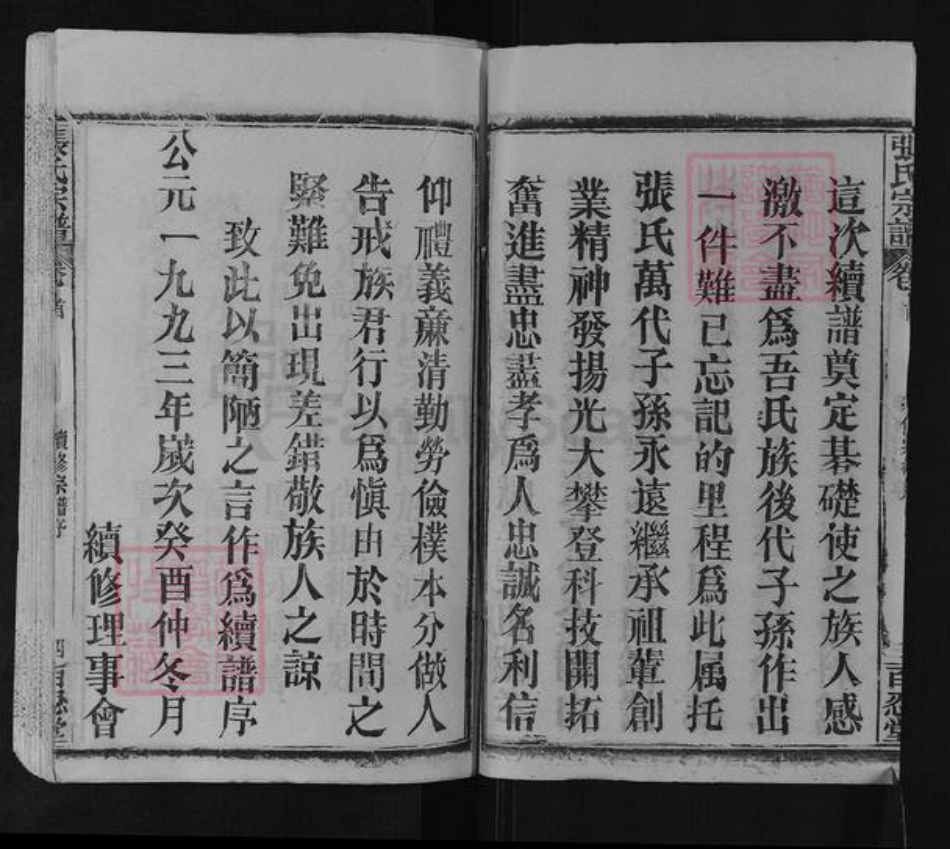 張氏宗譜
這次續譜奠定碁礎使之族人感
激不盡爲吾氏族後代子孫作出
一件難已忘記的里程爲此属托
張氏萬代子孫永遠繼承祖輩創
業精神發揚光大攀登科技開拓
奮進盡忠盡孝爲人忠誠名利信
仰禮義亷清勤勞儉樸本分做人
告戒族君行以爲愼由於時間之
緊難免出現差錯敬族人之諒
致此以簡陋之言作爲續譜序
公元一九九三年嵗次癸酉仲冬月
續修理事會
張氏宗譜
卷首
續修宗譜序
四
百忍堂